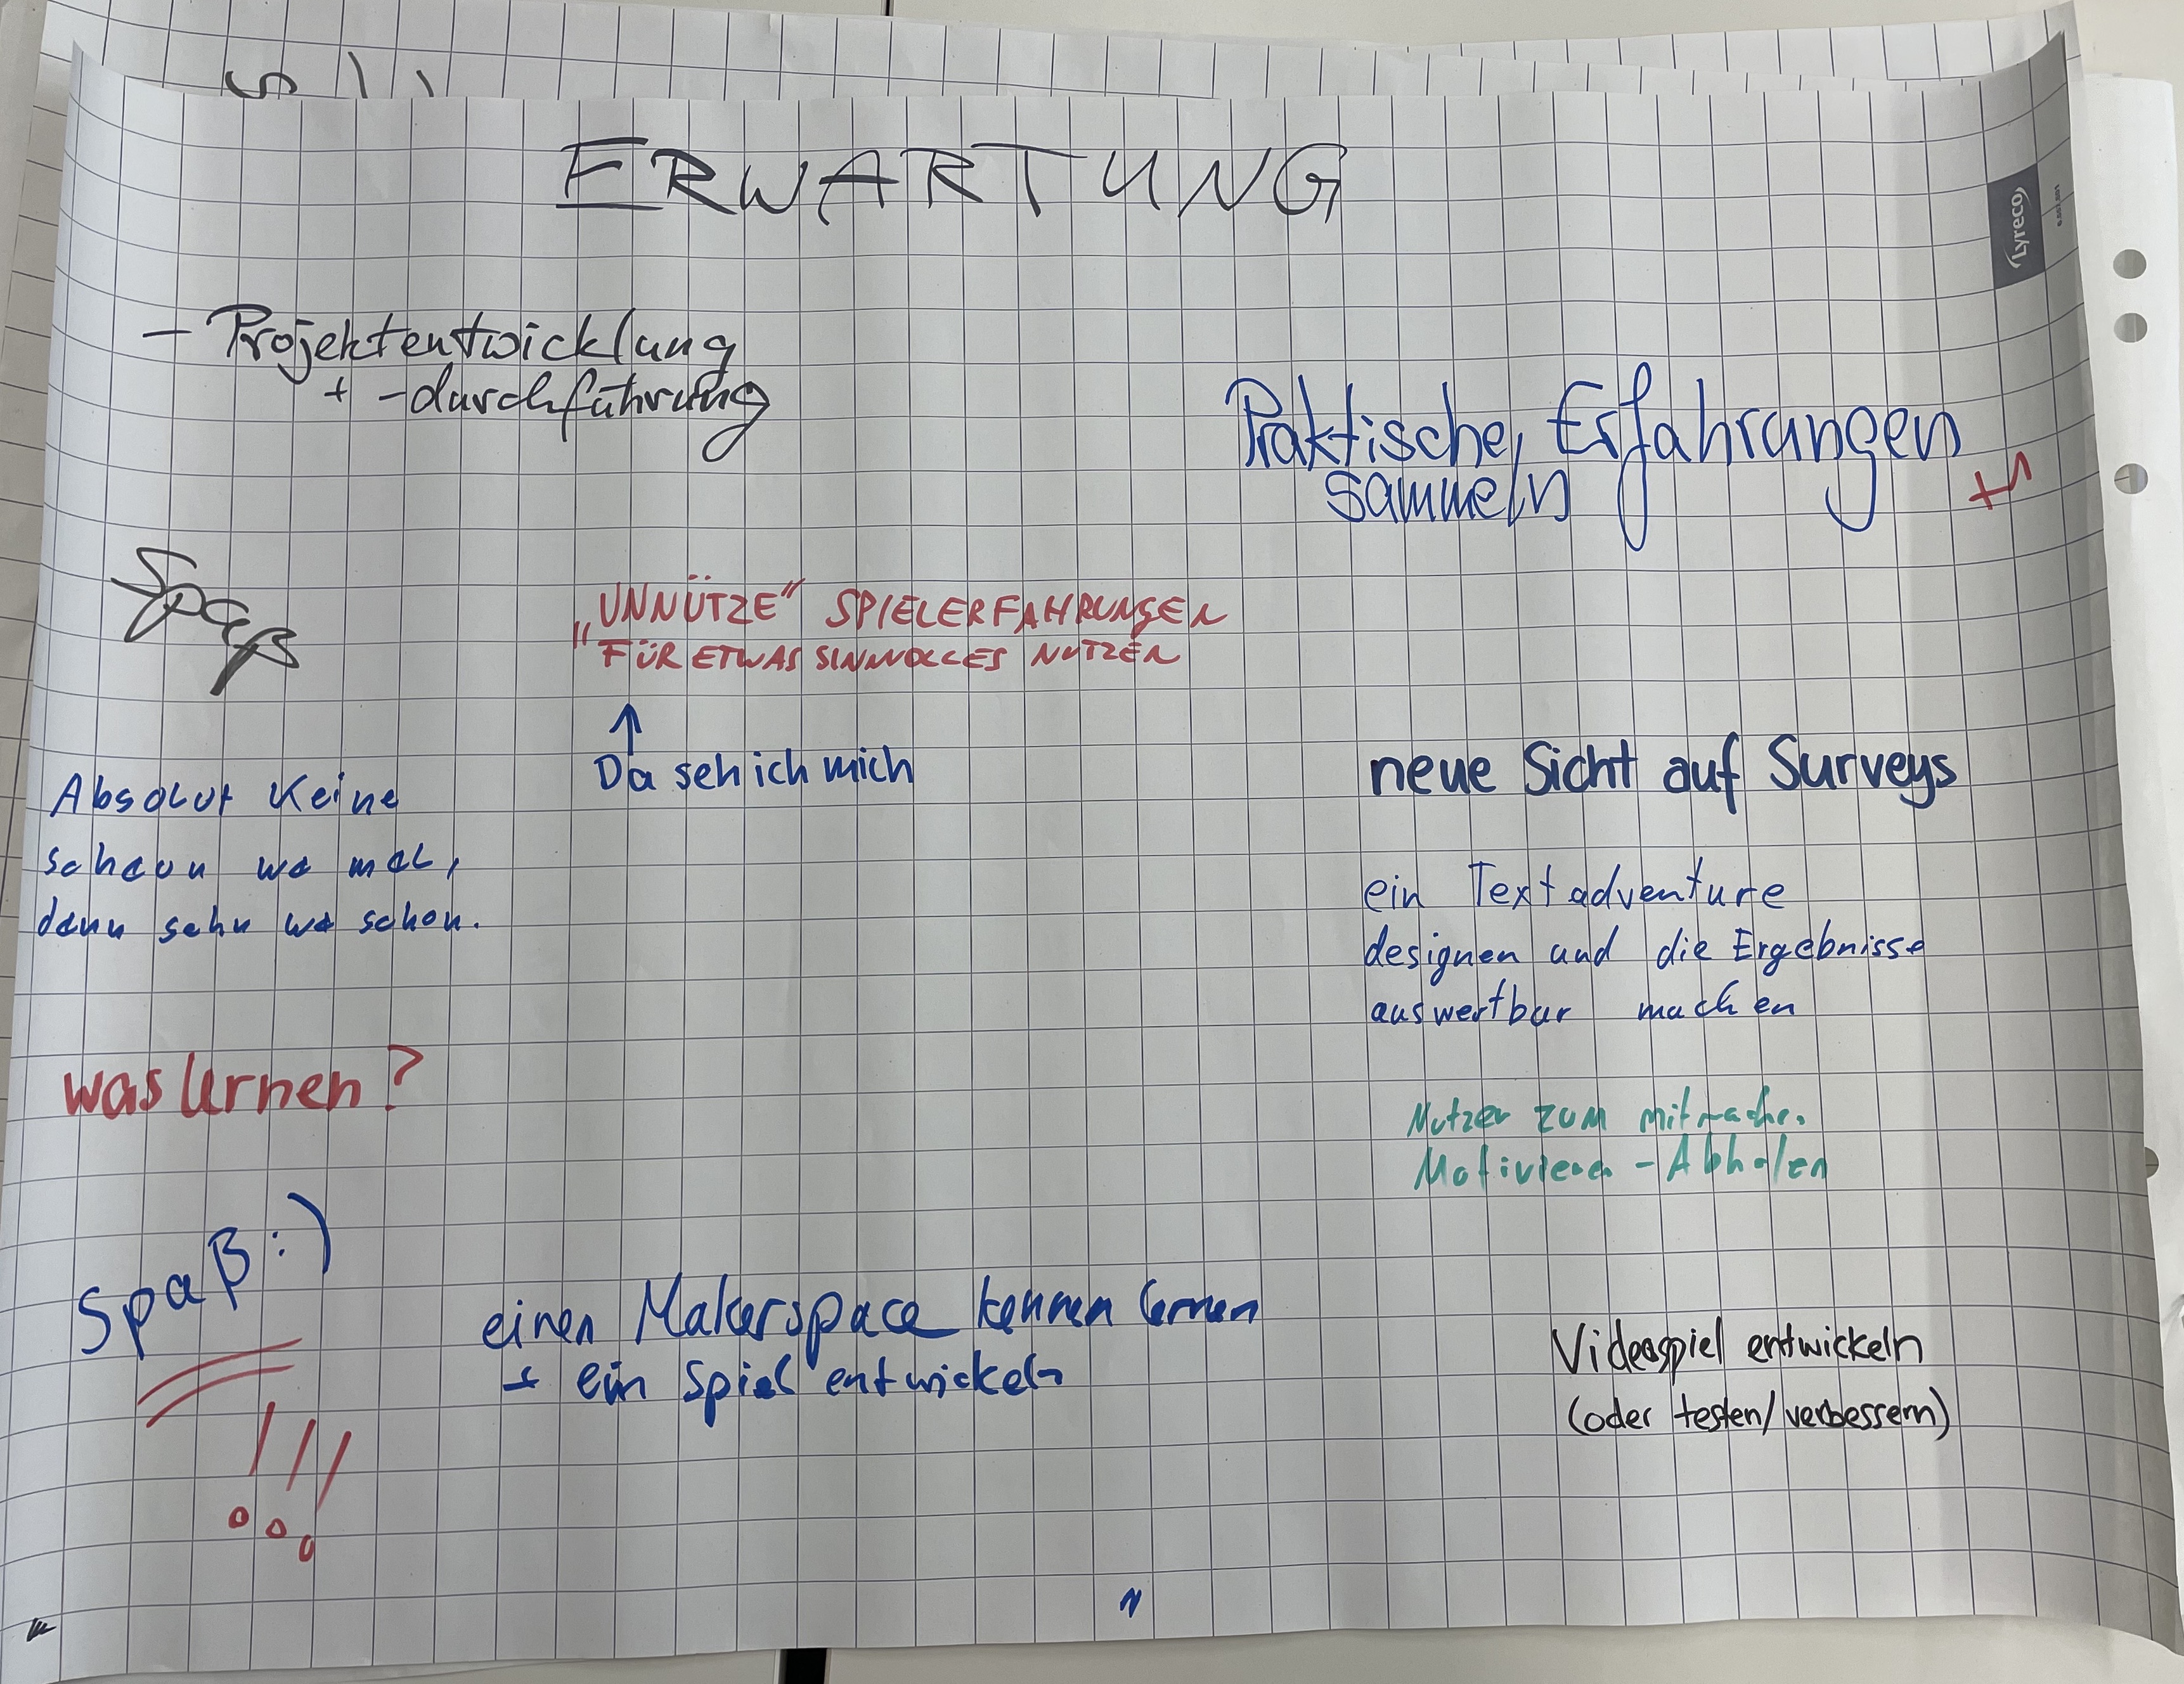 ERWARTUNG
Lyreco
- Projektentwicklung
+ -durchführung
Praktische Erfahrungen
sammeln
+1
Spaß
„UNNÜTZE“ SPIELERFAHRUNGEN
FÜR ETWAS SINNVOLLES NUTZEN
↑
Da seh ich mich
neue Sicht auf Surveys
Absolut Keine
schaun wa mal,
dann sehn wa schon.
ein Textadventure
designen und die Ergebnisse
auswertbar machen
was lernen?
Nutzer zum mitmachen
Motivieren - Abholen
Spaß :)
!!!
einen Makerspace kennen lernen
+ ein Spiel entwickeln
Videospiel entwickeln
(oder testen/verbessern)